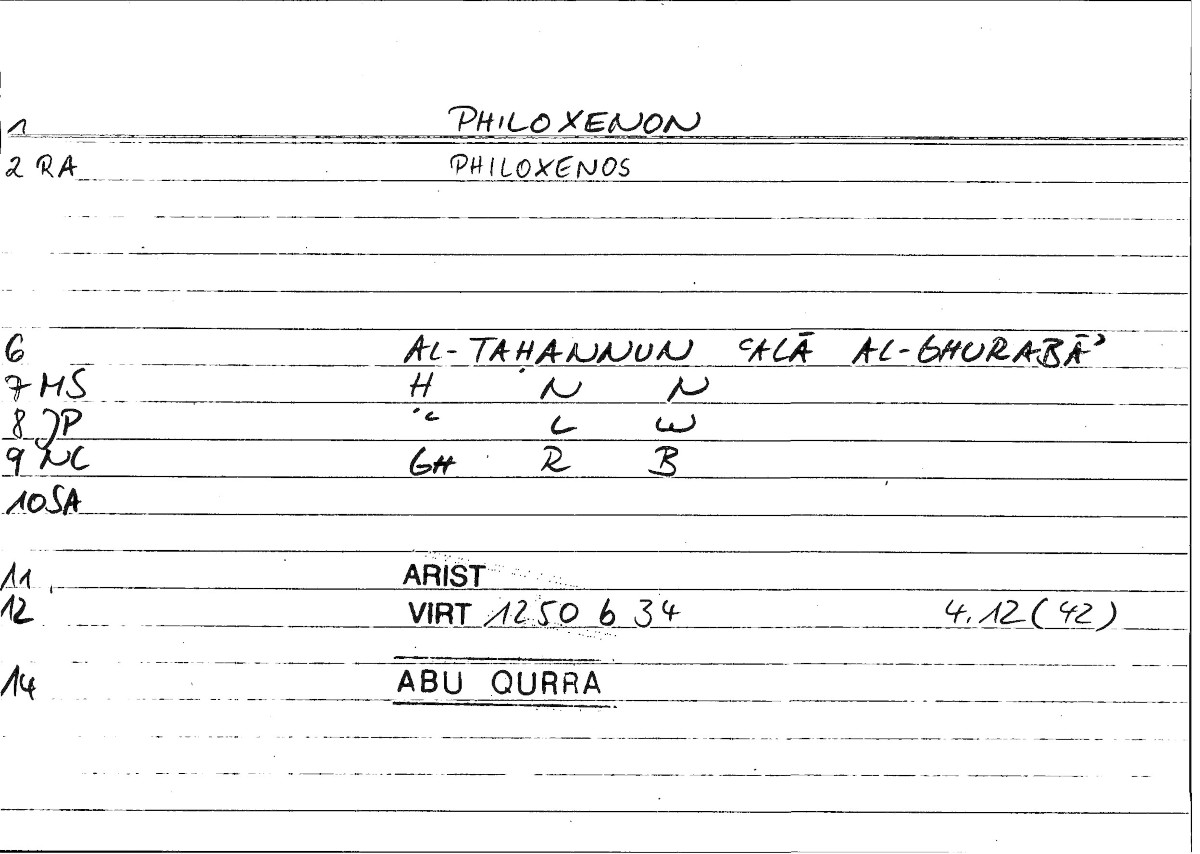 1 PHILOXENON
2 RA PHILOXENOS
6 AL-TAḤANNUN ʿALĀ AL-GHURABĀʾ
7 MS Ḥ N N
8 JP ʿ L W
9 NC GH R B
10 SA
11 ARIST
12 VIRT 1250 b 34 4.12 (42)
14 ABU QURRA